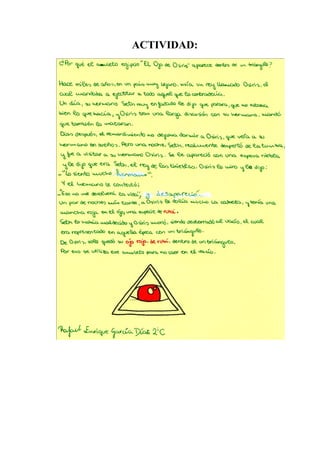 ACTIVIDAD:
¿Por qué el amuleto egipcio "EL Ojo de Osiris" aparece dentro de un triángulo?
Hace miles de años, en un país muy lejano, vivía un rey llamado Osiris, el
cual mandaba a ejecutar a todo aquél que le contradecía.
Un día, su hermano Seth muy enfadado le dijo que parara, que no estaba
bien lo que hacía, y Osiris tuvo una larga discusión con su hermano, mandó
que también lo mataran.
Días después, el remordimiento no dejaba dormir a Osiris, que veía a su
hermano en sueños. Pero una noche, Seth, realmente despertó de la tumba,
y fue a visitar a su hermano Osiris. Se le apareció con una especie niebla
y le dijo que era Seth, el rey de las tinieblas. Osiris lo miró y le dijo:
-"Lo siento mucho, hermano".
Y el hermano le contestó:
-"Eso no me devolverá la vida", y desapareció.
Un par de noches más tarde, a Osiris le dolía mucho la cabeza, y tenía una
mancha roja en el ojo, una especie de rubí.
Seth lo había maldecido y Osiris murió, siendo desterrado al vacío, el cual
era representado en aquella época con un triángulo.
De Osiris, solo quedó su ojo rojo de rubí dentro de un triángulo.
Por eso se utiliza ese amuleto para no caer en el vacío.
Rafael Enrique García Díaz 2ºC